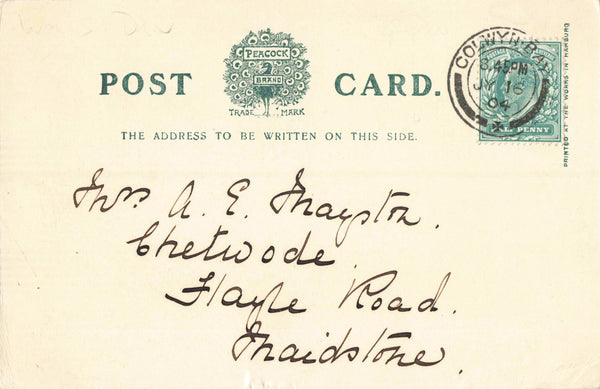 POST CARD.
PEACOCK
BRAND
TRADE MARK
THE ADDRESS TO BE WRITTEN ON THIS SIDE.
COLWYN-BAY
8.45PM
JY 16
04
HALFPENNY
PRINTED AT THE WORKS IN HAMBURG
Mrs A. E. Mayston.
Chetwode
Hayle Road.
Maidstone.